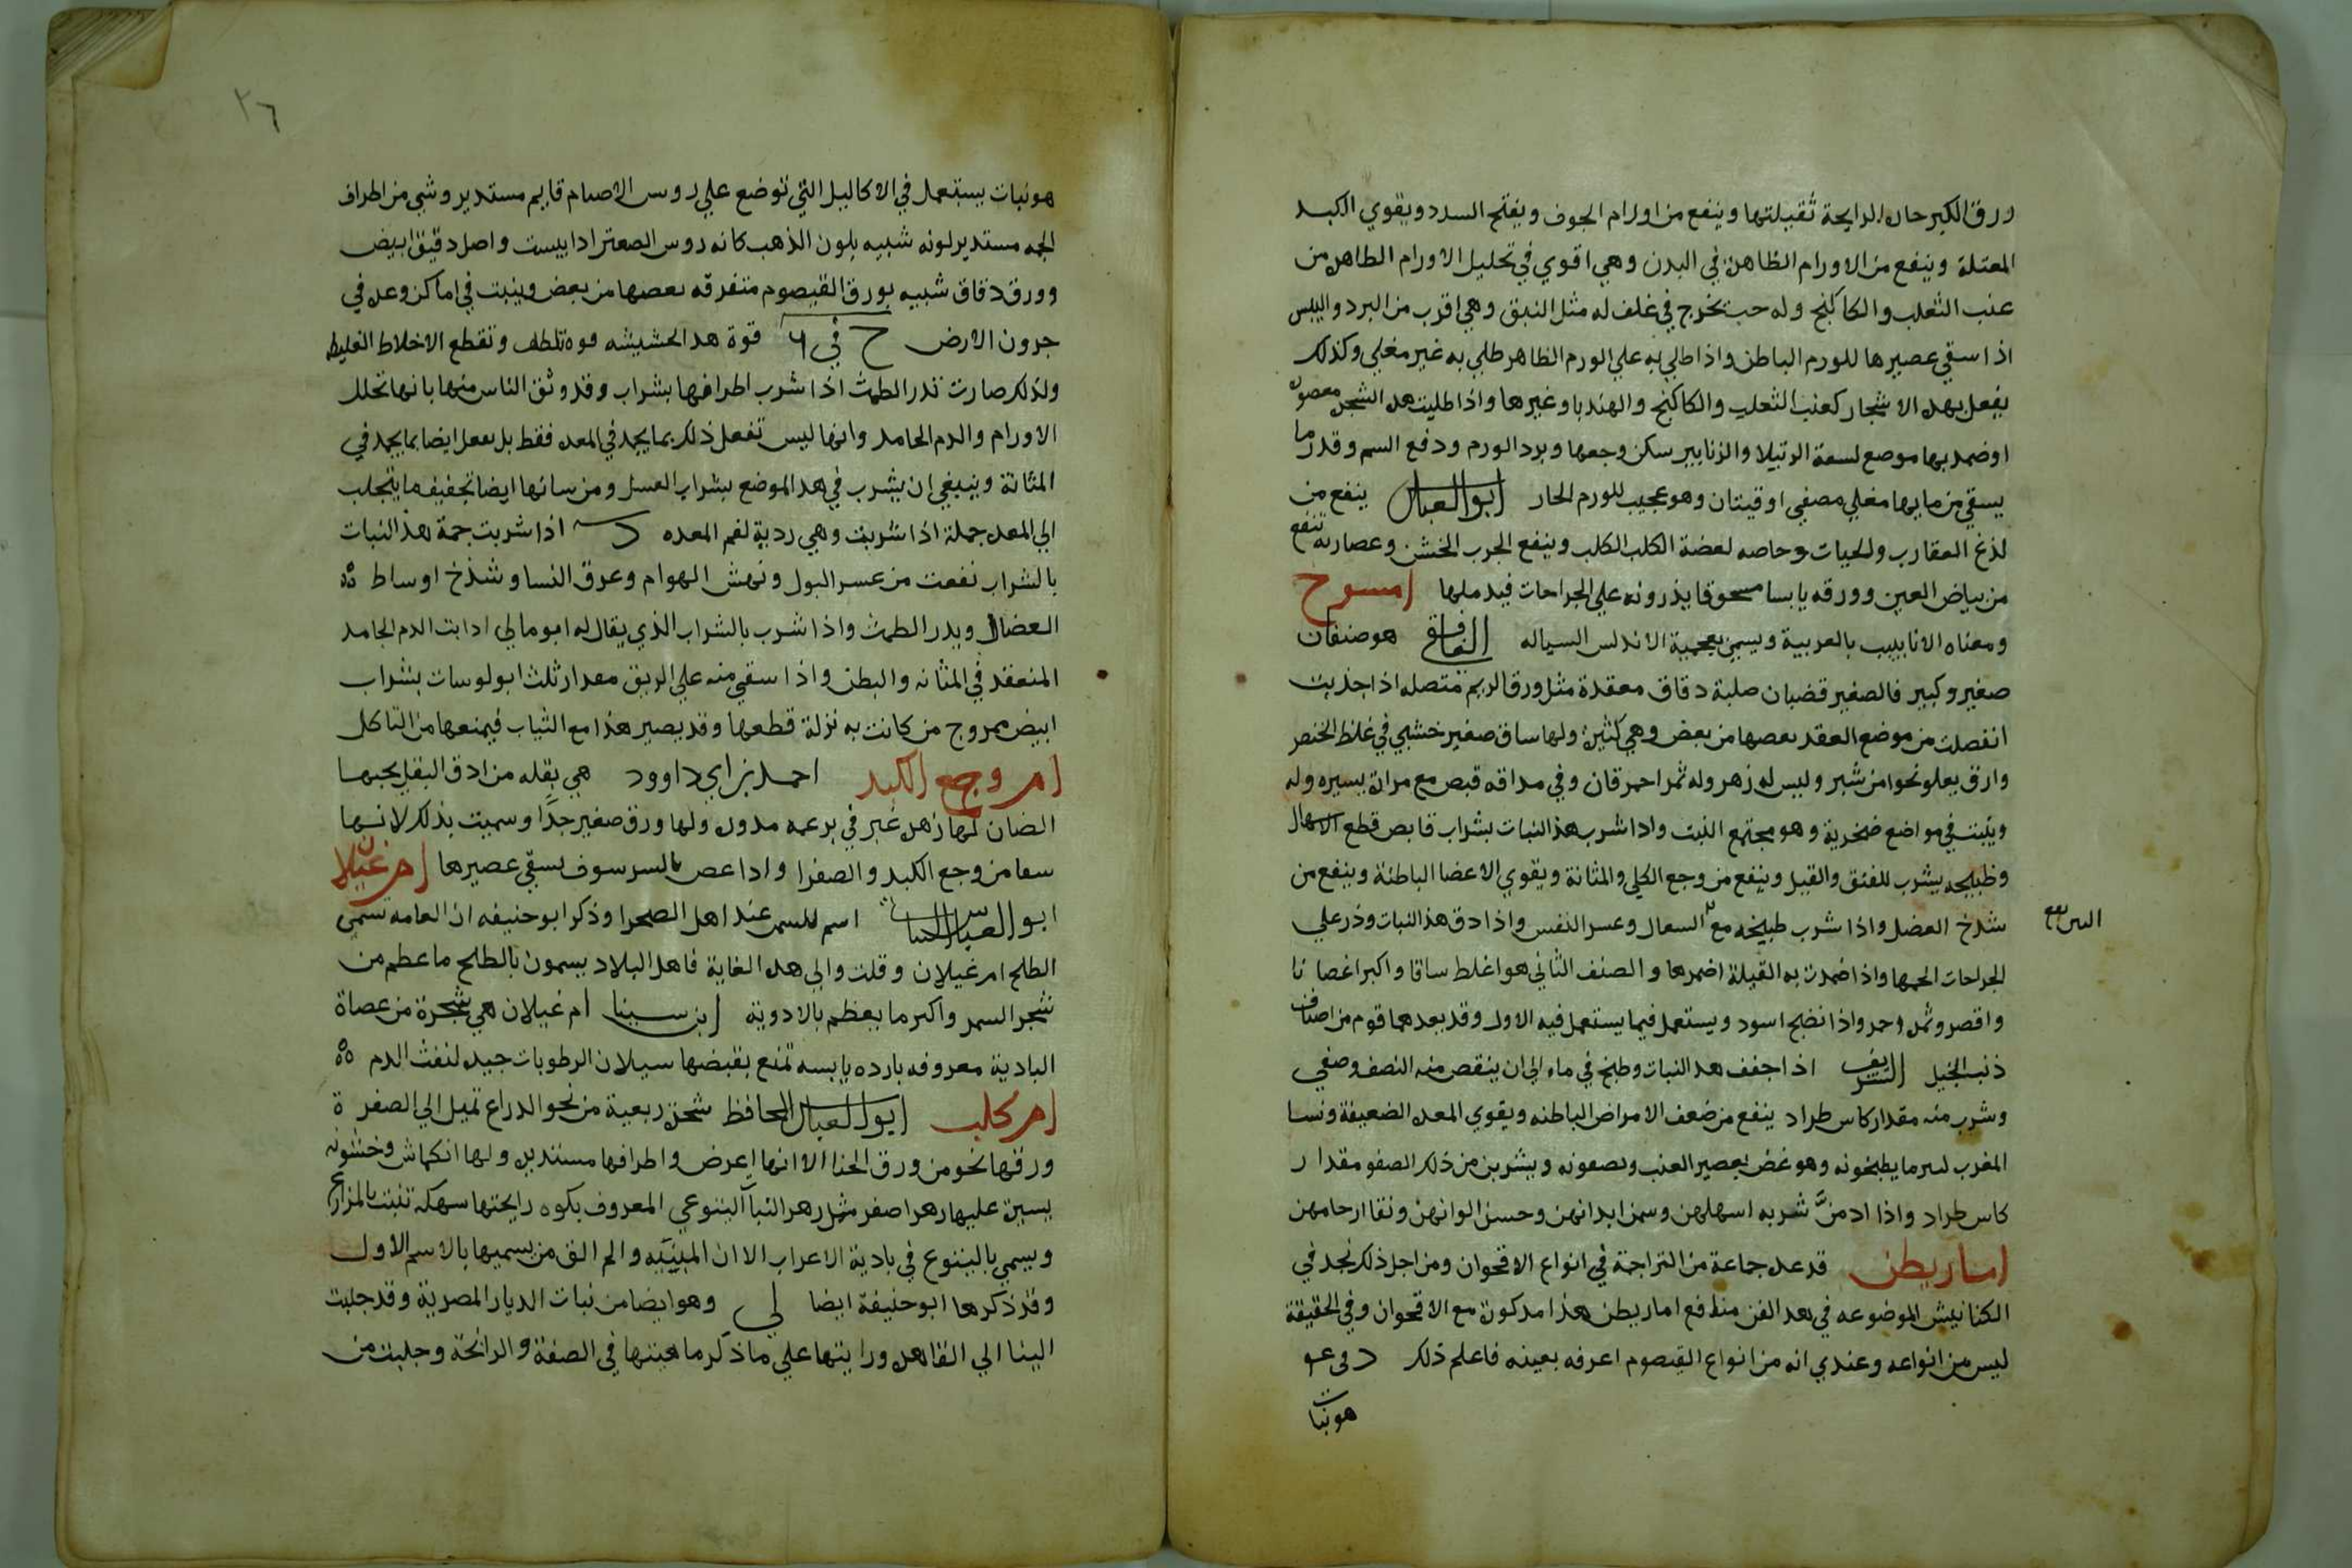 ورق الكبر حاد الرايحة ثقيلتها وينفع من اورام الجوف ويفتح السدد ويقوي الكبد
المعتلة وينفع من الاورام الظاهرة في البدن وهي اقوي في تحليل الاورام الظاهرة من
عنب الثعلب والكاكنج وله حب يخرج في غلف له مثل النبق وهي اقرب من البرد واليبس
اذا سقي عصيرها للورم الباطن واذا طلي به علي الورم الظاهر طلي به غير مغلي وكذلك
يفعل بهده الاشجار كعنب الثعلب والكاكنج والهندبا وغيرها واذا طليت هده الشجره معصوره
او ضمد بها موضع لسعة الرتيلا والزنابير سكن وجعها وبرد الورم ودفع السم وقدر ما
يسقي من مايها مغلي مصفي اوقيتان وهو عجيب للورم الحار ابو العباس ينفع من
لذغ العقارب والحيات وخاصه لعضة الكلب الكلب وينفع الجرب الخشن وعصارته تنفع
من بياض العين وورقه يابسا مسحوقا يذرونه علي الجراحات فيدملها امسوح
ومعناه الانابيب بالعربية ويسمي بعجمية الاندلس السياله الغافقي هو صنفان
صغير وكبير فالصغير قضبان صلبة دقاق معقدة مثل ورق الرتم متصله اذا جذبت
انفصلت من موضع العقد بعضها من بعض وهي كثيرة ولها ساق صغير خشبي في غلظ الخنصر
وارق يعلو نحوا من شبر وليس له زهر وله ثمر احمر قان وفي مداقه قبض مع مرارة يسيره وله
وينبت في مواضع صخرية وهو مجتمع النبت واذا شرب هذا النبات بشراب قابض قطع الاسهال
وطبيخه يشرب للفتق والقيل وينفع من وجع الكلي والمثانة ويقوي الاعضا الباطنة وينفع من
شدخ العضل واذا شرب طبيخه مع السعال وعسر النفس واذا دق هذا النبات وذر علي
الجراحات الحمها واذا ضمدت به القيلة اضمرها والصنف الثاني هو اغلظ ساقا واكبر اغصانا
واقصر وثمره احمر واذا نضج اسود ويستعمل فيما يستعمل فيه الاول وقد يعدهما قوم من اصناف
ذنب الخيل الشريف اذا جفف هدا النبات وطبخ في ماء الي ان ينقص منه النصف وصفي
وشرب منه مقدار كاس طراد ينفع من ضعف الامراض الباطنه ويقوي المعده الضعيفة ونسا
المغرب لسر ما يطبخونه وهو غض بعصير العنب ويصفونه ويشربن من ذلك الصفو مقدار
كاس طراد واذا ادمنَّ شربه اسهلهن وسمن ابدانهن وحسن الوانهن ونقا ارحامهن
اماريطن قد عده جماعة من التراجمة في انواع الاقحوان ومن اجل ذلك نجد في
الكنانيش الموضوعه في هدا الفن منافع اماريطن هذا مدكورة مع الاقحوان وفي الحقيقة
ليس من انواعه وعندي انه من انواع القيصوم اعرفه بعينه فاعلم ذلك
هو نبات
٢٦
هو نبات يستعمل في الاكاليل التي توضع علي روس الاصنام قايم مستدير وشي من اطراف
الجمه مستدير لونه شبيه بلون الذهب كانه روس الصعتر ادا يبست واصل دقيق ابيض
وورق دقاق شبيه بورق القيصوم متفرقه بعضها من بعض وينبت في اماكن وعره في
جرون الارض ح في ٦ قوة هدا الحشيشه قوه تلطف وتقطع الاخلاط الغليظه
ولذلك صارت تدر الطمث اذا شرب اطرافها بشراب وقد وثق الناس منها بانها تحلل
الاورام والدم الجامد وانها ليس تفعل ذلك بما يجمد في المعده فقط بل تفعل ايضا بما يجمد في
المثانة وينبغي ان يشرب في هذا الموضع بشراب العسل ومن شانها ايضا تجفيف ما يتجلب
الي المعده جملة اذا شربت وهي ردية لفم المعده د اذا شربت جمة هذا النبات
بالشراب نفعت من عسر البول ونهش الهوام وعرق النسا وشدخ اوساط
العضل ويدر الطمث واذا شرب بالشراب الذي يقال له ابومالي ادابت الدم الجامد
المنعقد في المثانه والبطن واذا سقي منه علي الريق مقدار ثلث ابولوسات بشراب
ابيض ممزوج من كانت به نزلة قطعها وقد يصير هذا مع الثياب فيمنعها من التاكل
ام وجع الكبد احمد بن ابي داوود هي بقله من ادق البقل يحبها
الضان لها زهرة غبر في برعمه مدوره ولها ورق صغير جدًا وسميت بذلك لانها
شفا من وجع الكبد والصفرا واذا عض بالسرسوف يسقي عصيرها ام غيلان
ابو العباس النباتي اسم للسمر عند اهل الصحرا وذكر ابو حنيفه ان العامه تسمي
الطلح ام غيلان وقلت والي هده الغاية فاهل البلاد يسمون بالطلح ما عظم من
شجر السمر واكبر ما يعظم بالاودية ابن سينا ام غيلان هي شجرة من عضاة
البادية معروفه بارده يابسه تمنع بقبضها سيلان الرطوبات جيد لنفث الدم
ام كلب ابو العباس الحافظ شجرة ربعية من نحو الدراع تميل الي الصفرة
ورقها نحو من ورق الحنا الا انها اعرض واطرافها مستديره ولها انكماش وخشونه
يسيرة عليها زهر اصفر مثل زهر النبات الينتوعي المعروف بكوه رايحتها سهكه تنبت بالمزارع
ويسمي بالينتوع في بادية الاعراب الا ان المبينَيَه والم الق من يسميها بالاسم الاول
وقد ذكرها ابو حنيفة ايضا لي وهو ايضا من نبات الديار المصرية وقد جلبت
الينا الي القاهره ورايتها علي ما ذكر ماهيتها في الصفة والرائحة وجلبت من